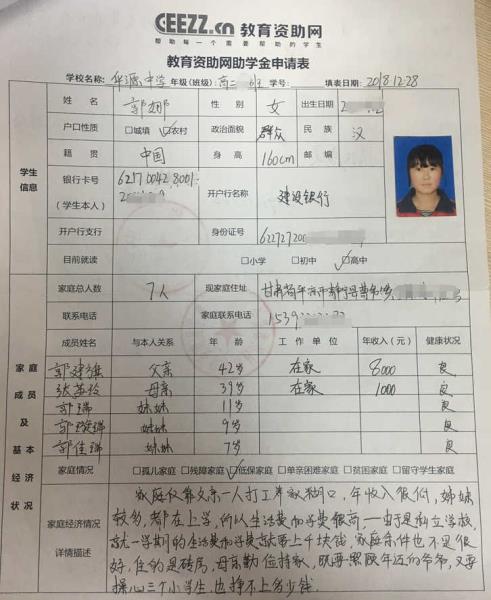 CEEZZ.cn 教育资助网
帮助每一个需要帮助的学生
教育资助网助学金申请表
学校名称: 华源中学 年级(班级): 高二 班 学号: 填表日期: 2018.12.28
姓名 郭娜 性别 女 出生日期 2
户口性质 □城填 ☑农村 政治面貌 群众 民族 汉
学生信息
籍贯 中国 身高 160cm 邮编
银行卡号 6217 0042 8001
(学生本人) 开户行名称 建设银行
开户行支行 身份证号 622727200
目前就读 □小学 □初中 ☑高中
家庭总人数 7人 现家庭住址 甘肃省平凉市静宁县
联系电话 家庭联系电话 1539
成员姓名 与本人关系 年龄 工作单位 年收入(元) 健康状况
郭建雄 父亲 42岁 在家 8000 良
张 母亲 39岁 在家 1000 良
郭瑞 妹妹 11岁 良
郭璇瑞 妹妹 9岁 良
郭佳瑞 妹妹 7岁 良
家庭成员及基本经济状况
家庭情况 □孤儿家庭 □残障家庭 ☑低保家庭 □单亲困难家庭 □贫困家庭 □留守学生家庭
家庭经济情况详情描述
家庭仅靠父亲一人打工养家糊口,年收入很低,姊妹
较多,都在上学,所以生活费加学费很高——由于是私立学校,
就一学期的生活费加学费就要上千块钱,家庭条件也不是很
好,住的是砖房,母亲勤俭持家,既要照顾年迈的爷爷,又要
操心三个小学生,也挣不上多少钱.